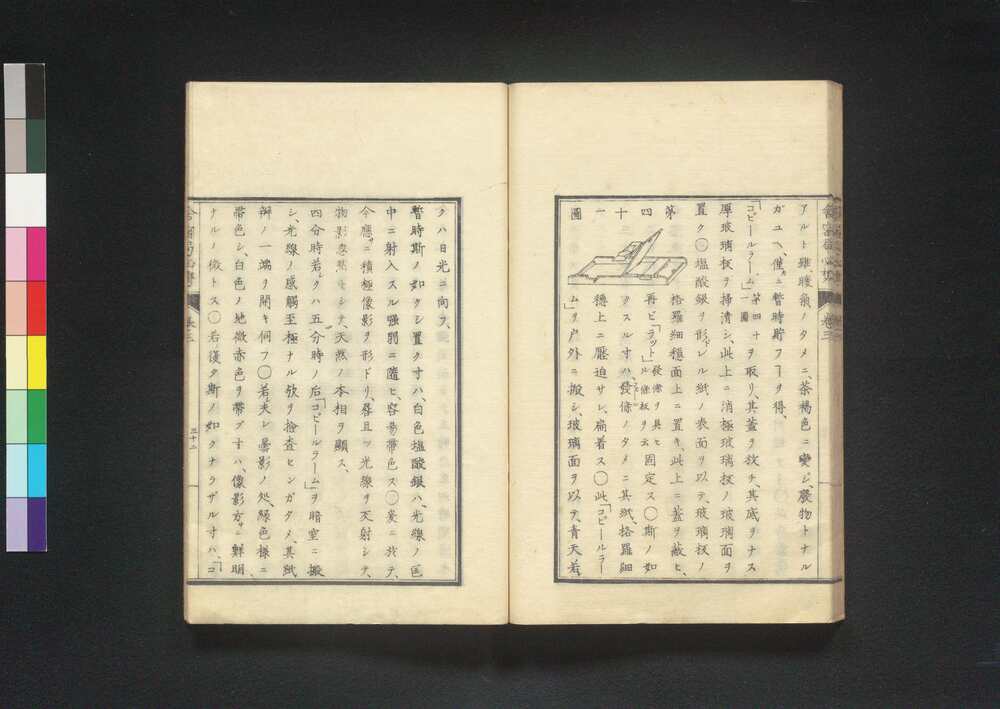 アルト雖、暖氣ノタメニ、茶褐色ニ變ジ、癈物トナル
ガユヘ、僅カニ暫時貯フヿヲ得、
「コピールラーム」第四十一圖ヲ取リ、其蓋ヲ放チ、其底ヲナス
厚玻璃板ヲ掃清シ、此上ニ消極玻璃板ノ玻璃面ヲ
置ク〇塩酸銀ヲ形ドレル紙ノ表面ヲ以テ、玻璃板ノ
格羅細穏面上ニ置キ、此上ニ蓋ヲ蔽ヒ、
再ビ「ラット」發條ヲ具ヒル條板ヲ云固定ス〇斯ノ如
クスル寸ハ、發條ノタメニ其紙、格羅細
穏上ニ壓迫サレ、扁着ス〇此「コピールラー
ム」ヲ戸外ニ搬シ、玻璃面ヲ以テ、青天若
第四十一圖
クハ日光ニ向フ、
暫時斯ノ如クシ置ク寸ハ、白色塩酸銀ハ、光線ノ匣
中ニ射入スル強弱ニ隨ヒ、容易帶色ス〇爰ニ於テ、
今應ニ積極像影ヲ形ドリ、畧且ツ光線ヲ天射シテ、
物影忽然トシテ、天然ノ本相ヲ顯ス、
四分時若クハ五分時ノ后「コピールラーム」ヲ暗室ニ搬
シ、光線ノ感觸至極ナル欤ヲ檢査ヒンガタメ、其紙
辨ノ一端ヲ開キ伺フ〇若夫レ曇影ノ処、緑色様ニ
帶色シ、白色ノ地微赤色ヲ帶ブ寸ハ、像影方ニ鮮明
ナルノ徴トス〇若復タ斯ノ如クナラザル寸ハ、「コ
三十二